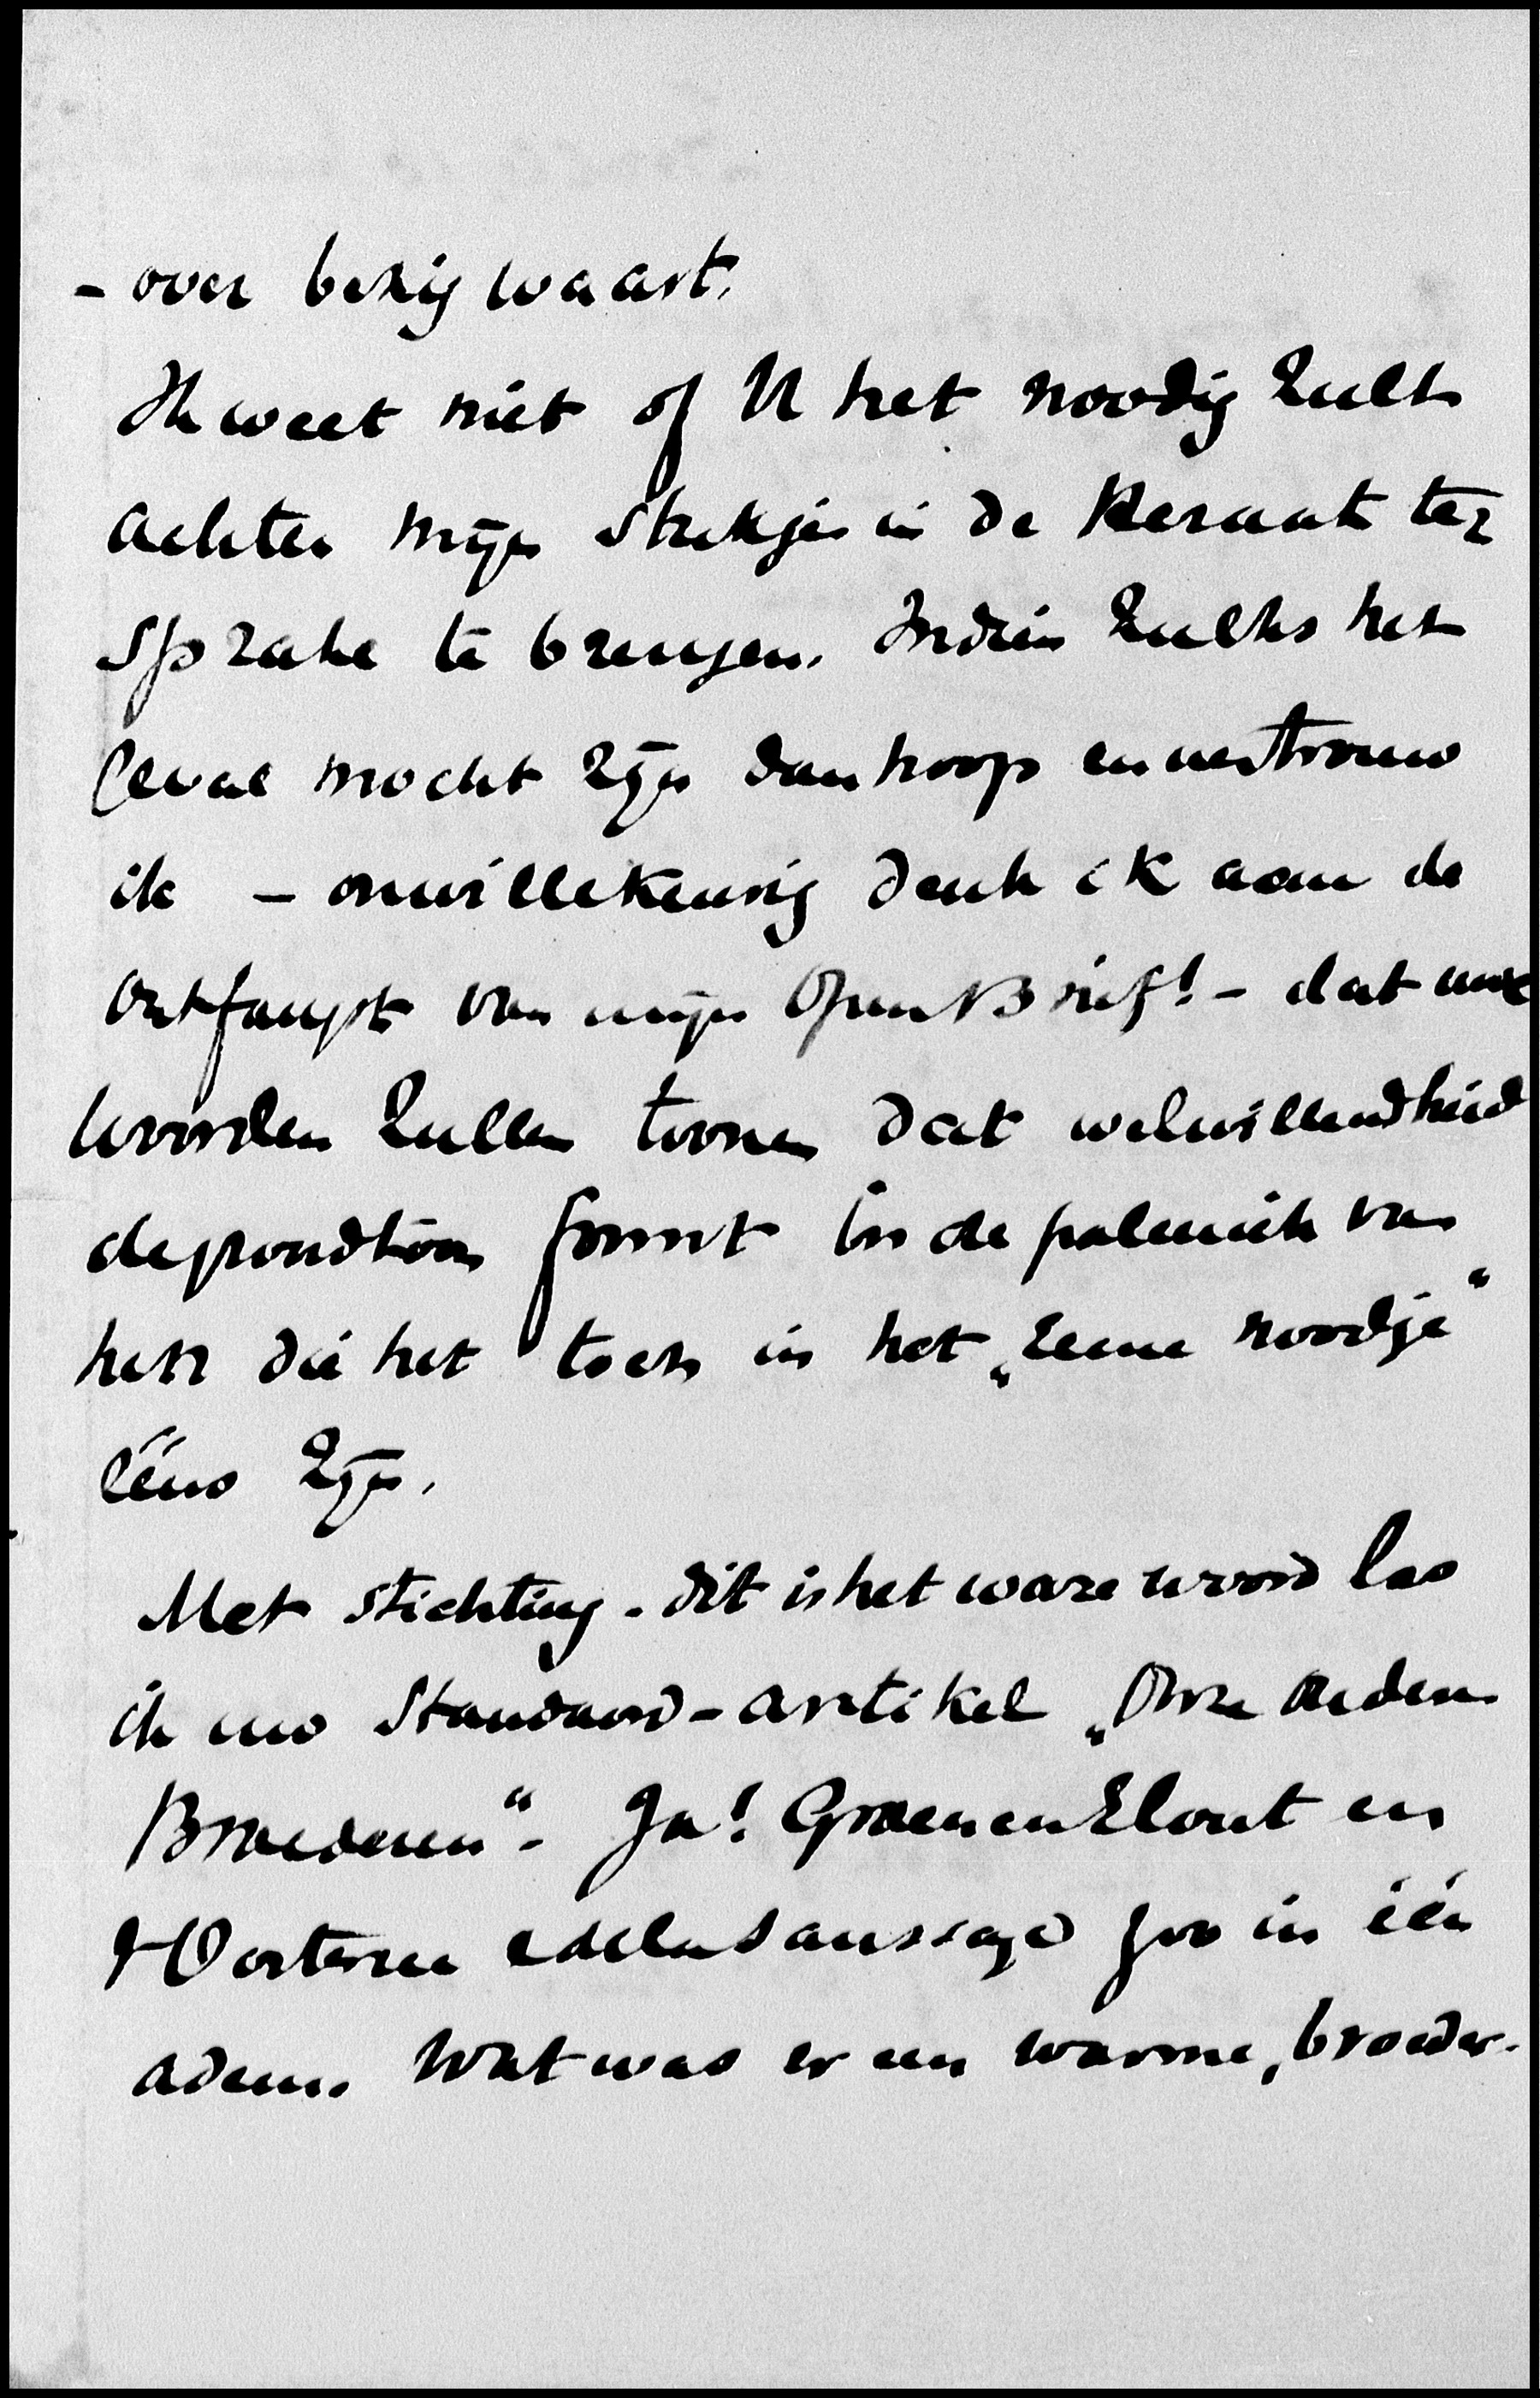 - over bezig waart.
Ik weet niet of U het noodig zult
achten mijn stukjes in de Heraut ter
sprake te brengen. Indien zulks het
geval mocht zijn dan hoop en vertrouw
ik - onwillekeurig denk ik aan de
ontfangst van mijn Open Brief! - dat uwe
woorden zullen toonen dat welwillendheid
de grondtoon formt in de polemiek van
hen die het toch in het „eene noodje"
ééns zijn.
Met stichting - dit is het ware woord las
ik uw Standaard-artikel „Onze
Broederen". Ja! Groen en Elout en
edele zoo in één
adem. Wat was er een warme, broeder-